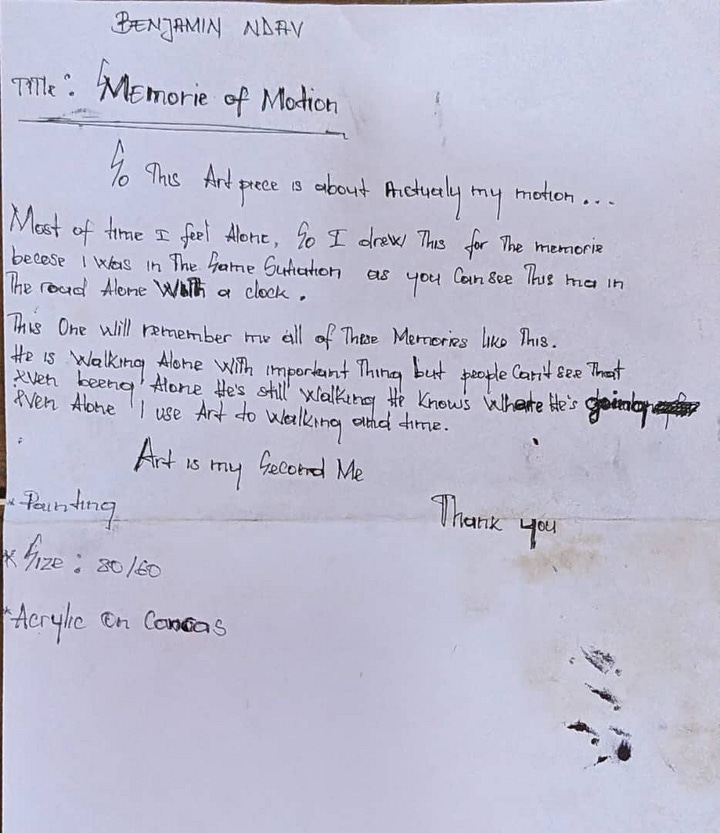 BENJAMIN NDAV
Title: Memorie of Motion
So This Art piece is about Actualy my motion...
Most of time I feel Alone, So I drew This for The memorie
becese I was in The Same Sutiation as you Can see This ma in
The road Alone With a clock.
This One will remember me all of These Memories like This.
He is Walking Alone With important Thing but people Can't see That
Even beeng Alone He's still Walking He Knows Where He's going
Even Alone I use Art to Walking and time.
Art is my Second Me
* Painting
Thank you
* Size: 80/60
* Acrylic on Canvas